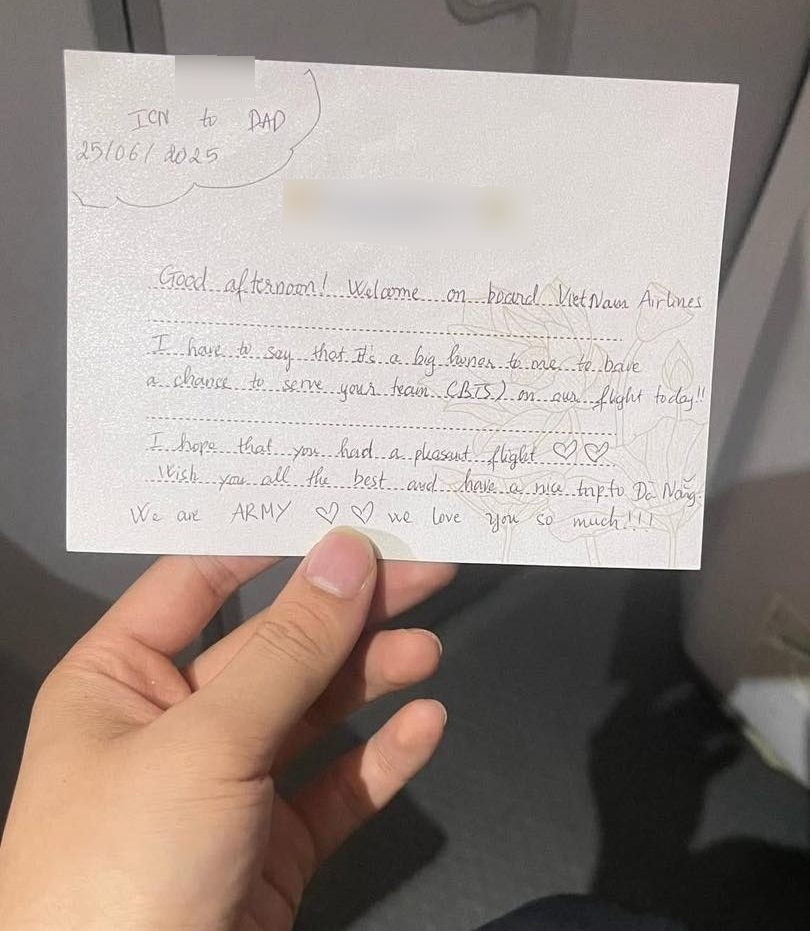 ICN to DAD
25/06/2025
Good afternoon! Welcome on board VietNam Airlines
I have to say that it's a big honor to me to have
a chance to serve your team (BTS) on our flight today!!
I hope that you had a pleasant flight ♡♡
Wish you all the best and have a nice trip to Đà Nẵng.
We are ARMY ♡♡ we love you so much!!!